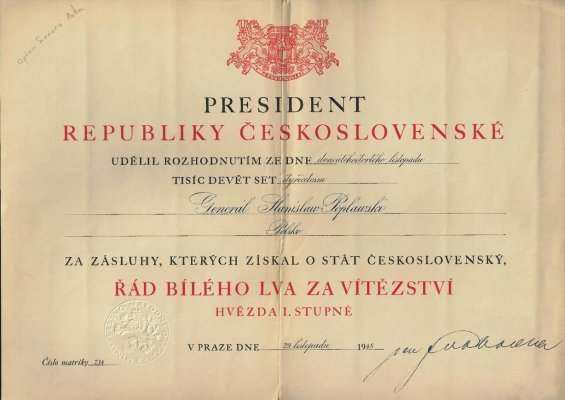 PRESIDENT
REPUBLIKY ČESKOSLOVENSKÉ
UDĚLIL ROZHODNUTÍM ZE DNE dvacátéhočtvrtého listopadu
TISÍC DEVĚT SET čtyřicetosm
Generál Stanisław Popławski
Polsko
ZA ZÁSLUHY, KTERÝCH ZÍSKAL O STÁT ČESKOSLOVENSKÝ,
ŘÁD BÍLÉHO LVA ZA VÍTĚZSTVÍ
HVĚZDA I. STUPNĚ
V PRAZE DNE 29 listopadu 1948
Číslo matriky 234